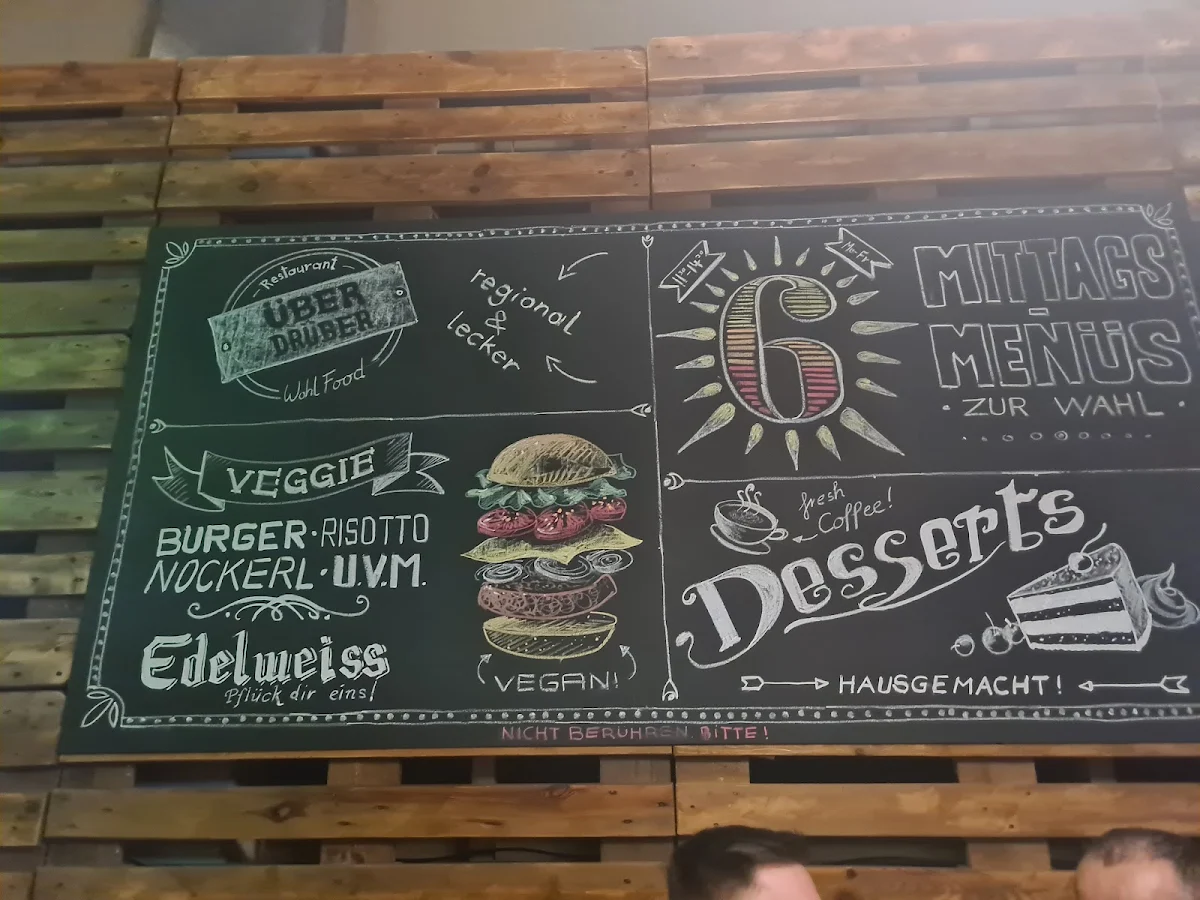 Restaurant
ÜBER
DRÜBER
Wohl Food
regional
&
lecker
VEGGIE
BURGER · RISOTTO
NOCKERL · U.V.M.
Edelweiss
Pflück dir eins!
VEGAN!
Mo-Fr
6
MITTAGS
-
MENÜS
· ZUR WAHL ·
fresh
Coffee!
Desserts
HAUSGEMACHT!
NICHT BERÜHREN. BITTE!